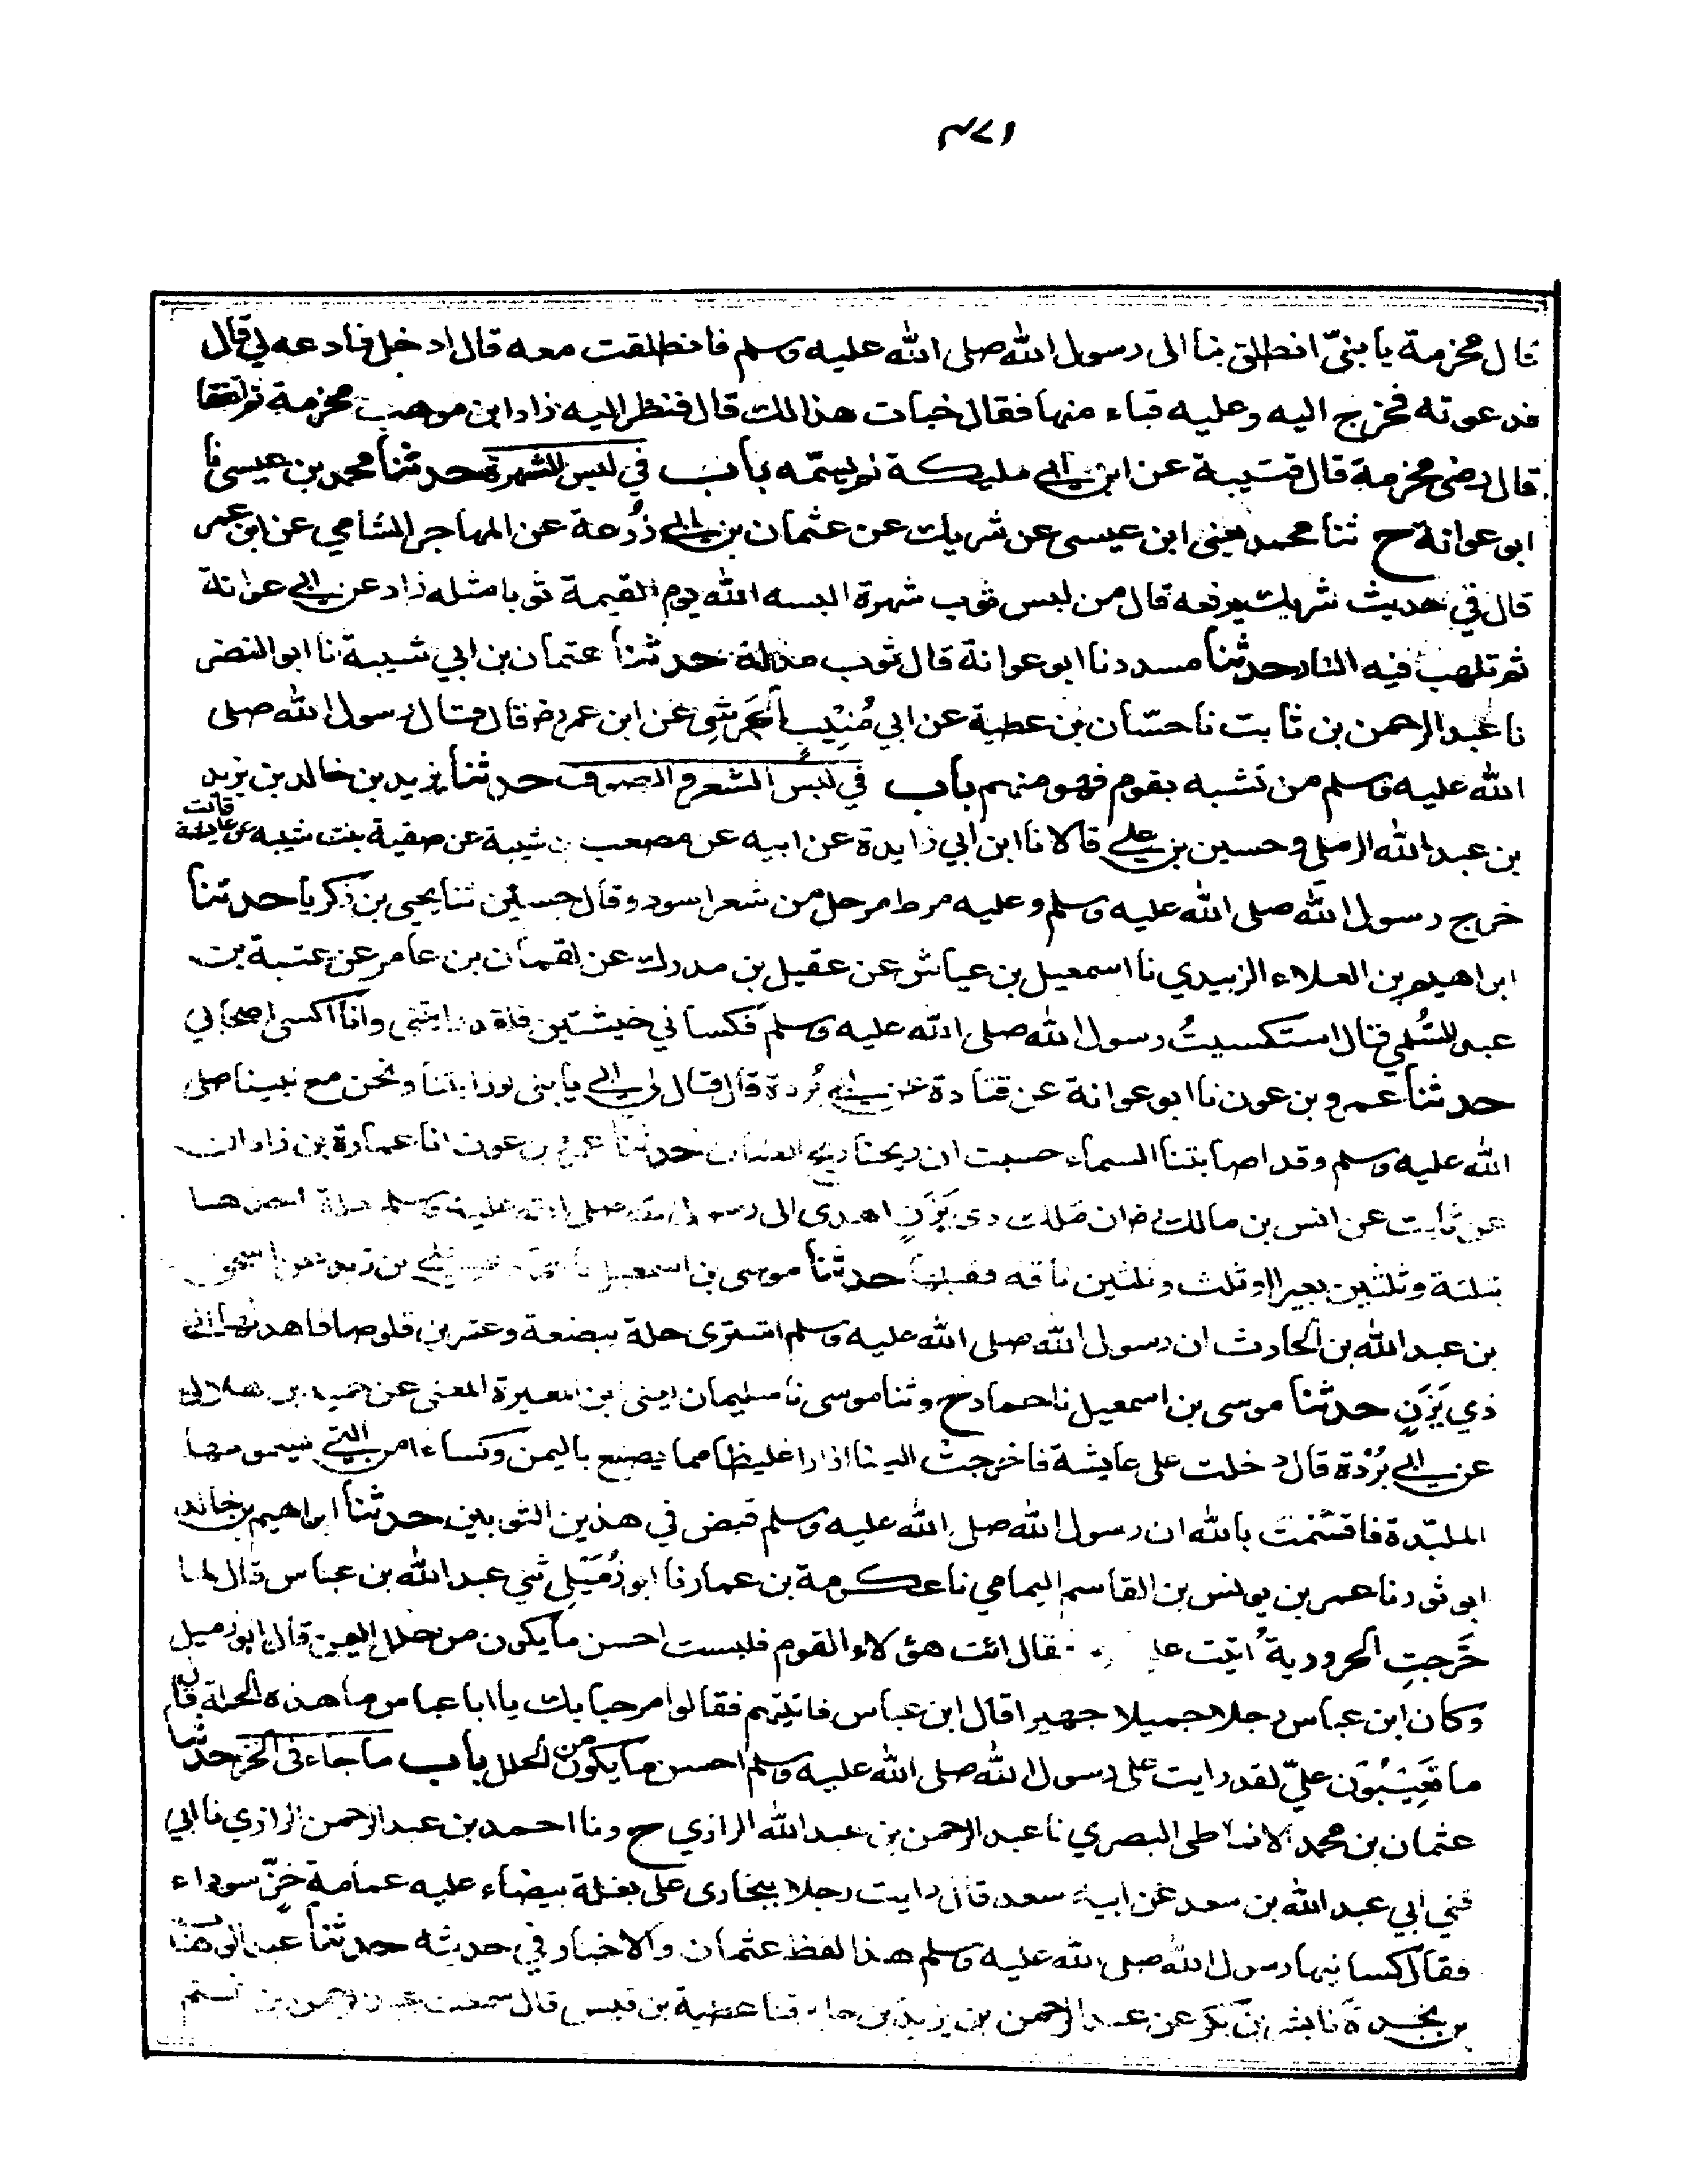 قال مخرمة يا بنيّ انطلق بنا الى رسول الله صلى الله عليه وسلم فانطلقت معه قال ادخل فادعه لي قال
فدعوته فخرج اليه وعليه قباء منها فقال خبات هذا لك قال فنظر اليه زاد ابن موهب مخرمة ثم اتفقا
قال رضى مخرمة قال قتيبة عن ابن ابي مليكة لم يسمّه باب في لبس الشهرة حدثنا محمد بن عيسى نا
ابو عوانة ح ثنا محمد يعنى ابن عيسى عن شريك عن عثمان بن ابي زُرعة عن المهاجر الشامي عن ابن عمر
قال في حديث شريك يرفعه قال من لبس ثوب شهرة البسه الله يوم القيمة ثوبا مثله زاد عن ابي عوانة
ثم تلهب فيه النار حدثنا مسدد نا ابو عوانة قال ثوب مذلة حدثنا عثمان بن ابي شيبة نا ابو النضر
نا عبد الرحمن بن ثابت نا حسّان بن عطية عن ابي مُنِيْب الجَرشِي عن ابن عمر رض قال قال رسول الله صلى
الله عليه وسلم من تشبه بقوم فهو منهم باب في لُبْس الشعر والصوف حدثنا يزيد بن خالد بن يزيد
بن عبد الله الرملي وحسين بن علي قالا نا ابن ابي زايدة عن ابيه عن مصعب بن شيبة عن صفية بنت شيبه عن عايشة قالت
خرج رسول الله صلى الله عليه وسلم وعليه مرط مرحل من شعر اسود وقال حسين ثنا يحيى بن زكريا حدثنا
ابراهيم بن العلاء الزبيدي نا اسمعيل بن عياش عن عقيل بن مدرك عن لقمان بن عامر عن عتبة بن
عبد السُّلمي قال استكسيتُ رسول الله صلى الله عليه وسلم فكساني خيشتين فلقد رايتني وانا اكسى اصحابي
حدثنا عمرو بن عون نا ابو عوانة عن قتادة عن ابي بُردة قال قال لي ابي يا بنى لو رايتنا ونحن مع نبينا صلى
الله عليه وسلم وقد اصابتنا السماء حسبت ان ريحنا ريح الضان حدثنا عمرو بن عون انا عمارة بن زاذان
عن ثابت عن انس بن مالك رض ان ملك ذي يَزَنٍ اهدى الى رسول الله صلى الله عليه وسلم حلة اخذها
بثلثة وثلثين بعيرا او ثلث وثلثين ناقة فقبلها حدثنا موسى بن اسمعيل نا حماد عن علي بن زيد عن اسحق
بن عبد الله بن الحارث ان رسول الله صلى الله عليه وسلم اشترى حلة ببضعة وعشرين قلوصا فاهداها الى
ذي يَزَنٍ حدثنا موسى بن اسمعيل نا حماد ح وثنا موسى نا سليمان يعنى ابن المغيرة المعنى عن حميد بن هلال
عن ابي بُرْدَة قال دخلت على عايشة فاخرجت الينا ازارا غليظا مما يصنع باليمن وكساء من التي يسمونها
الملبّدة فاقسَمت بالله ان رسول الله صلى الله عليه وسلم قبض في هذين الثوبين حدثنا ابراهيم بن خالد
ابو ثور نا عمر بن يونس بن القاسم اليمامي نا عكرمة بن عمار نا ابو زُمَيْلٍ ثني عبد الله بن عباس قال لما
خَرجتِ الحرورية اتيت عليا فقال ائت هؤلاء القوم فلبست احسن ما يكون من حلل اليمن قال ابو زميل
وكان ابن عباس رجلا جميلا جهيرا قال ابن عباس فاتيتهم فقالوا مرحبا بك يا ابا عباس ما هذه الحلة قال
ما تَعِيْبُوَن عليّ لقد رايت على رسول الله صلى الله عليه وسلم احسن ما يكون من الحلل باب ما جاء فى الخز حدثنا
عثمان بن محمد الانماطى البصري نا عبد الرحمن بن عبد الله الرازي ح ونا احمد بن عبد الرحمن الرازي نا ابي
ثني ابي عبد الله بن سعد عن ابيه سعد قال رايت رجلا ببخارى على بغلة بيضاء عليه عمامة خزّ سوداء
فقال كسانيها رسول الله صلى الله عليه وسلم هذا لفظ عثمان والاخبار في حديثه حدثنا عبد الوهاب
بن نجدة نا بشر بن بكر عن عبد الرحمن بن يزيد بن جابر ثنا عطية بن قيس قال سمعت عبد الرحمن بن